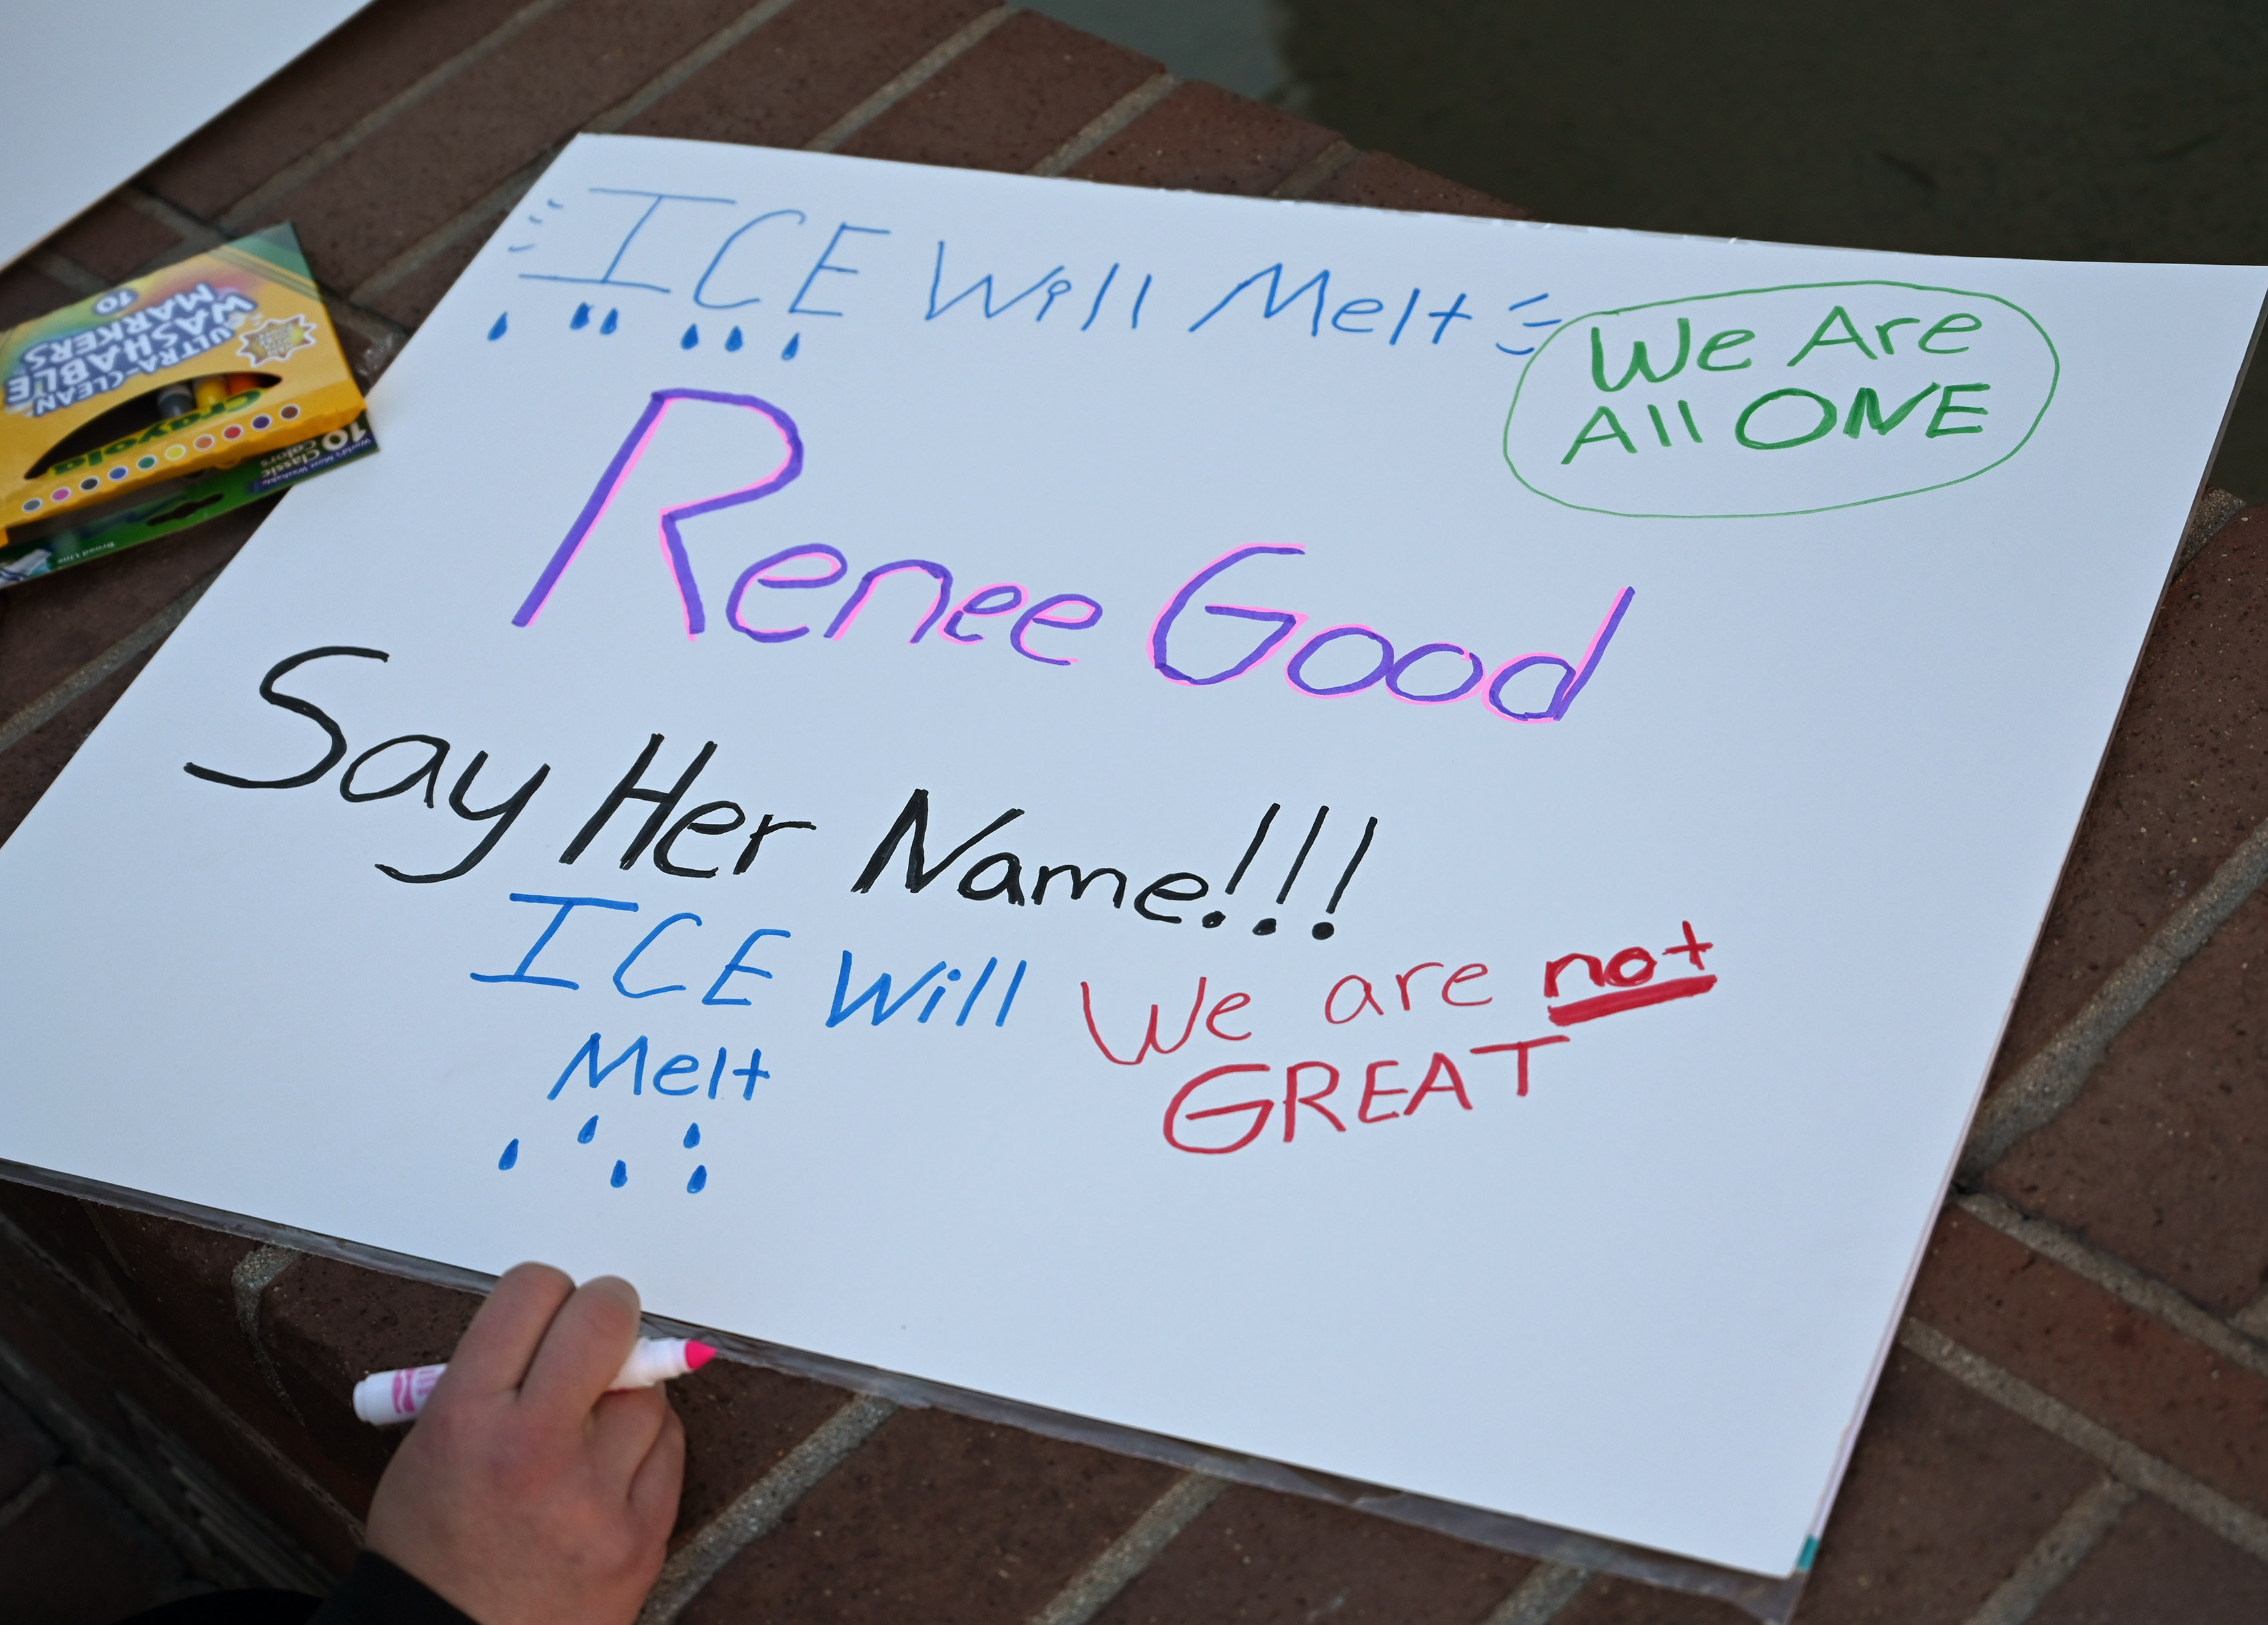 ICE Will Melt
We Are
All ONE
Renee Good
Say Her Name!!!
ICE Will
Melt
We are not
GREAT
ULTRA-CLEAN
WASHABLE
MARKERS
10
Crayola
10 Classic
Colors
World's Most Washable
Broad Line